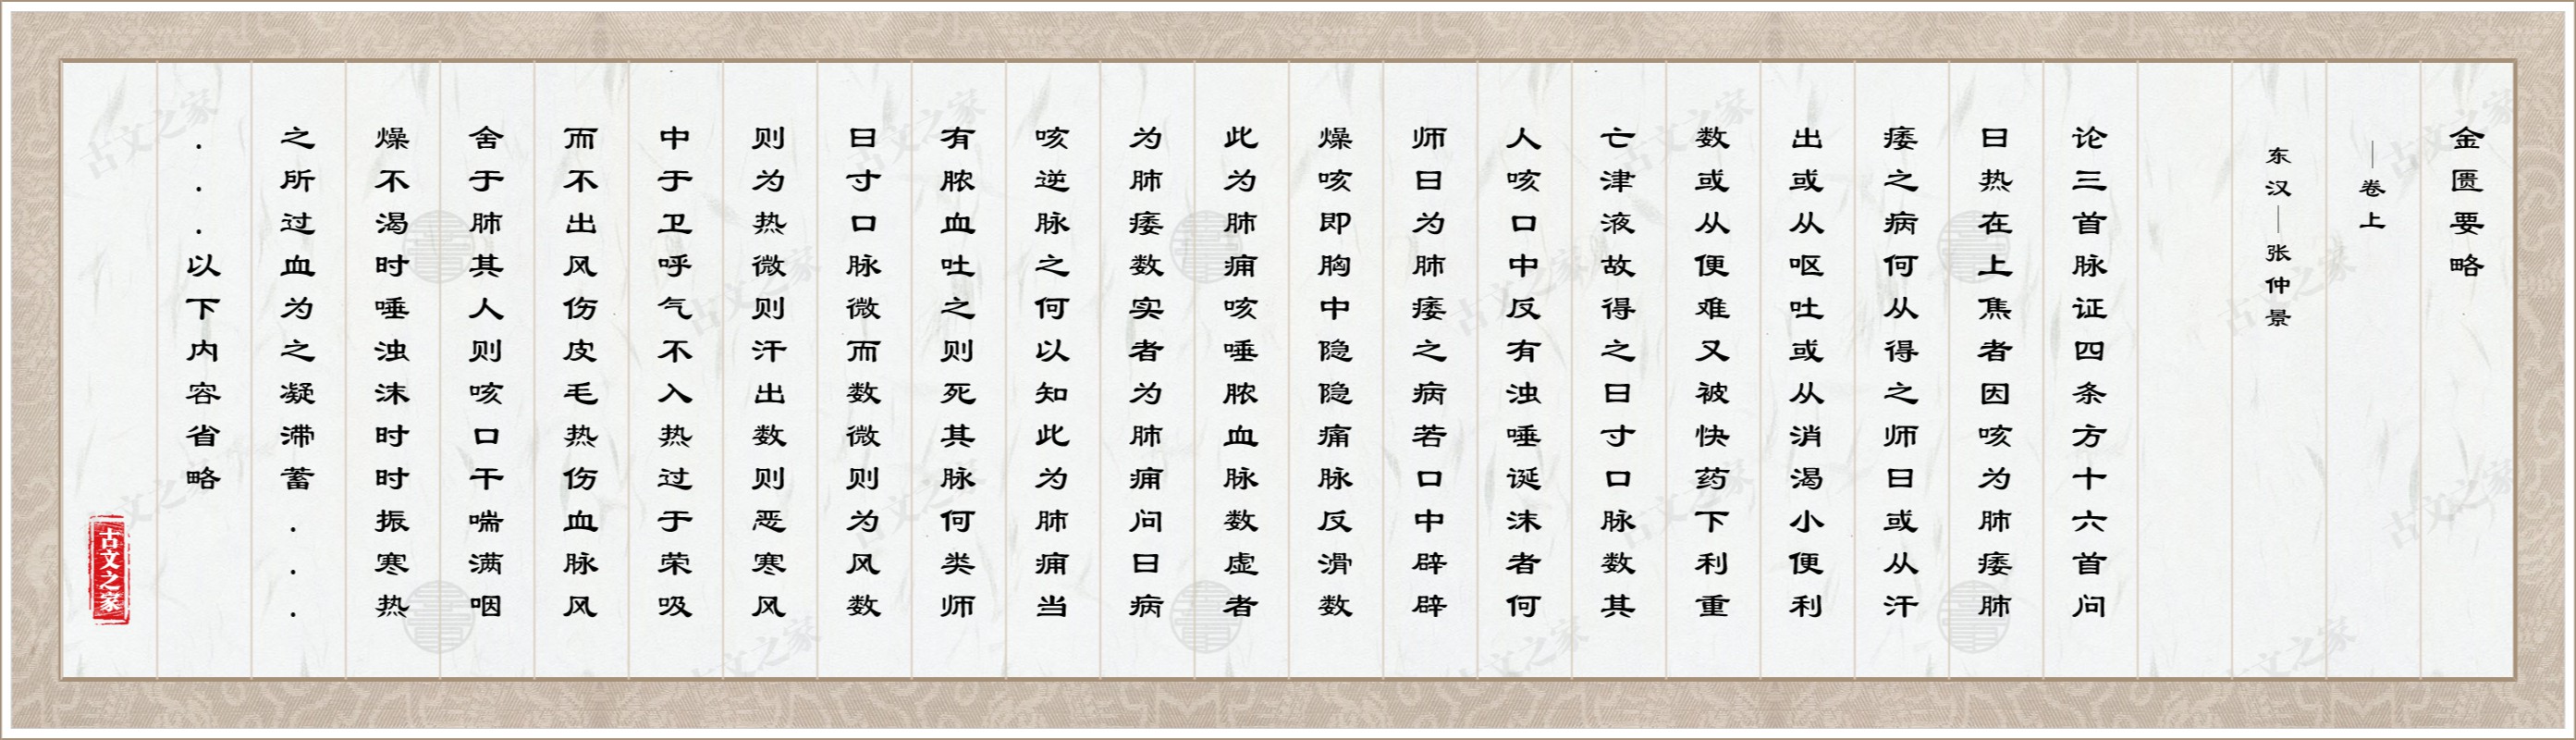 金匮要略
—卷上
东汉—张仲景
论三首脉证四条方十六首问
曰热在上焦者因咳为肺痿肺
痿之病何从得之师曰或从汗
出或从呕吐或从消渴小便利
数或从便难又被快药下利重
亡津液故得之曰寸口脉数其
人咳口中反有浊唾涎沫者何
师曰为肺痿之病若口中辟辟
燥咳即胸中隐隐痛脉反滑数
此为肺痈咳唾脓血脉数虚者
为肺痿数实者为肺痈问曰病
咳逆脉之何以知此为肺痈当
有脓血吐之则死其脉何类师
曰寸口脉微而数微则为风数
则为热微则汗出数则恶寒风
中于卫呼气不入热过于荣吸
而不出风伤皮毛热伤血脉风
舍于肺其人则咳口干喘满咽
燥不渴时唾浊沫时时振寒热
之所过血为之凝滞蓄...
...以下内容省略
古文之家